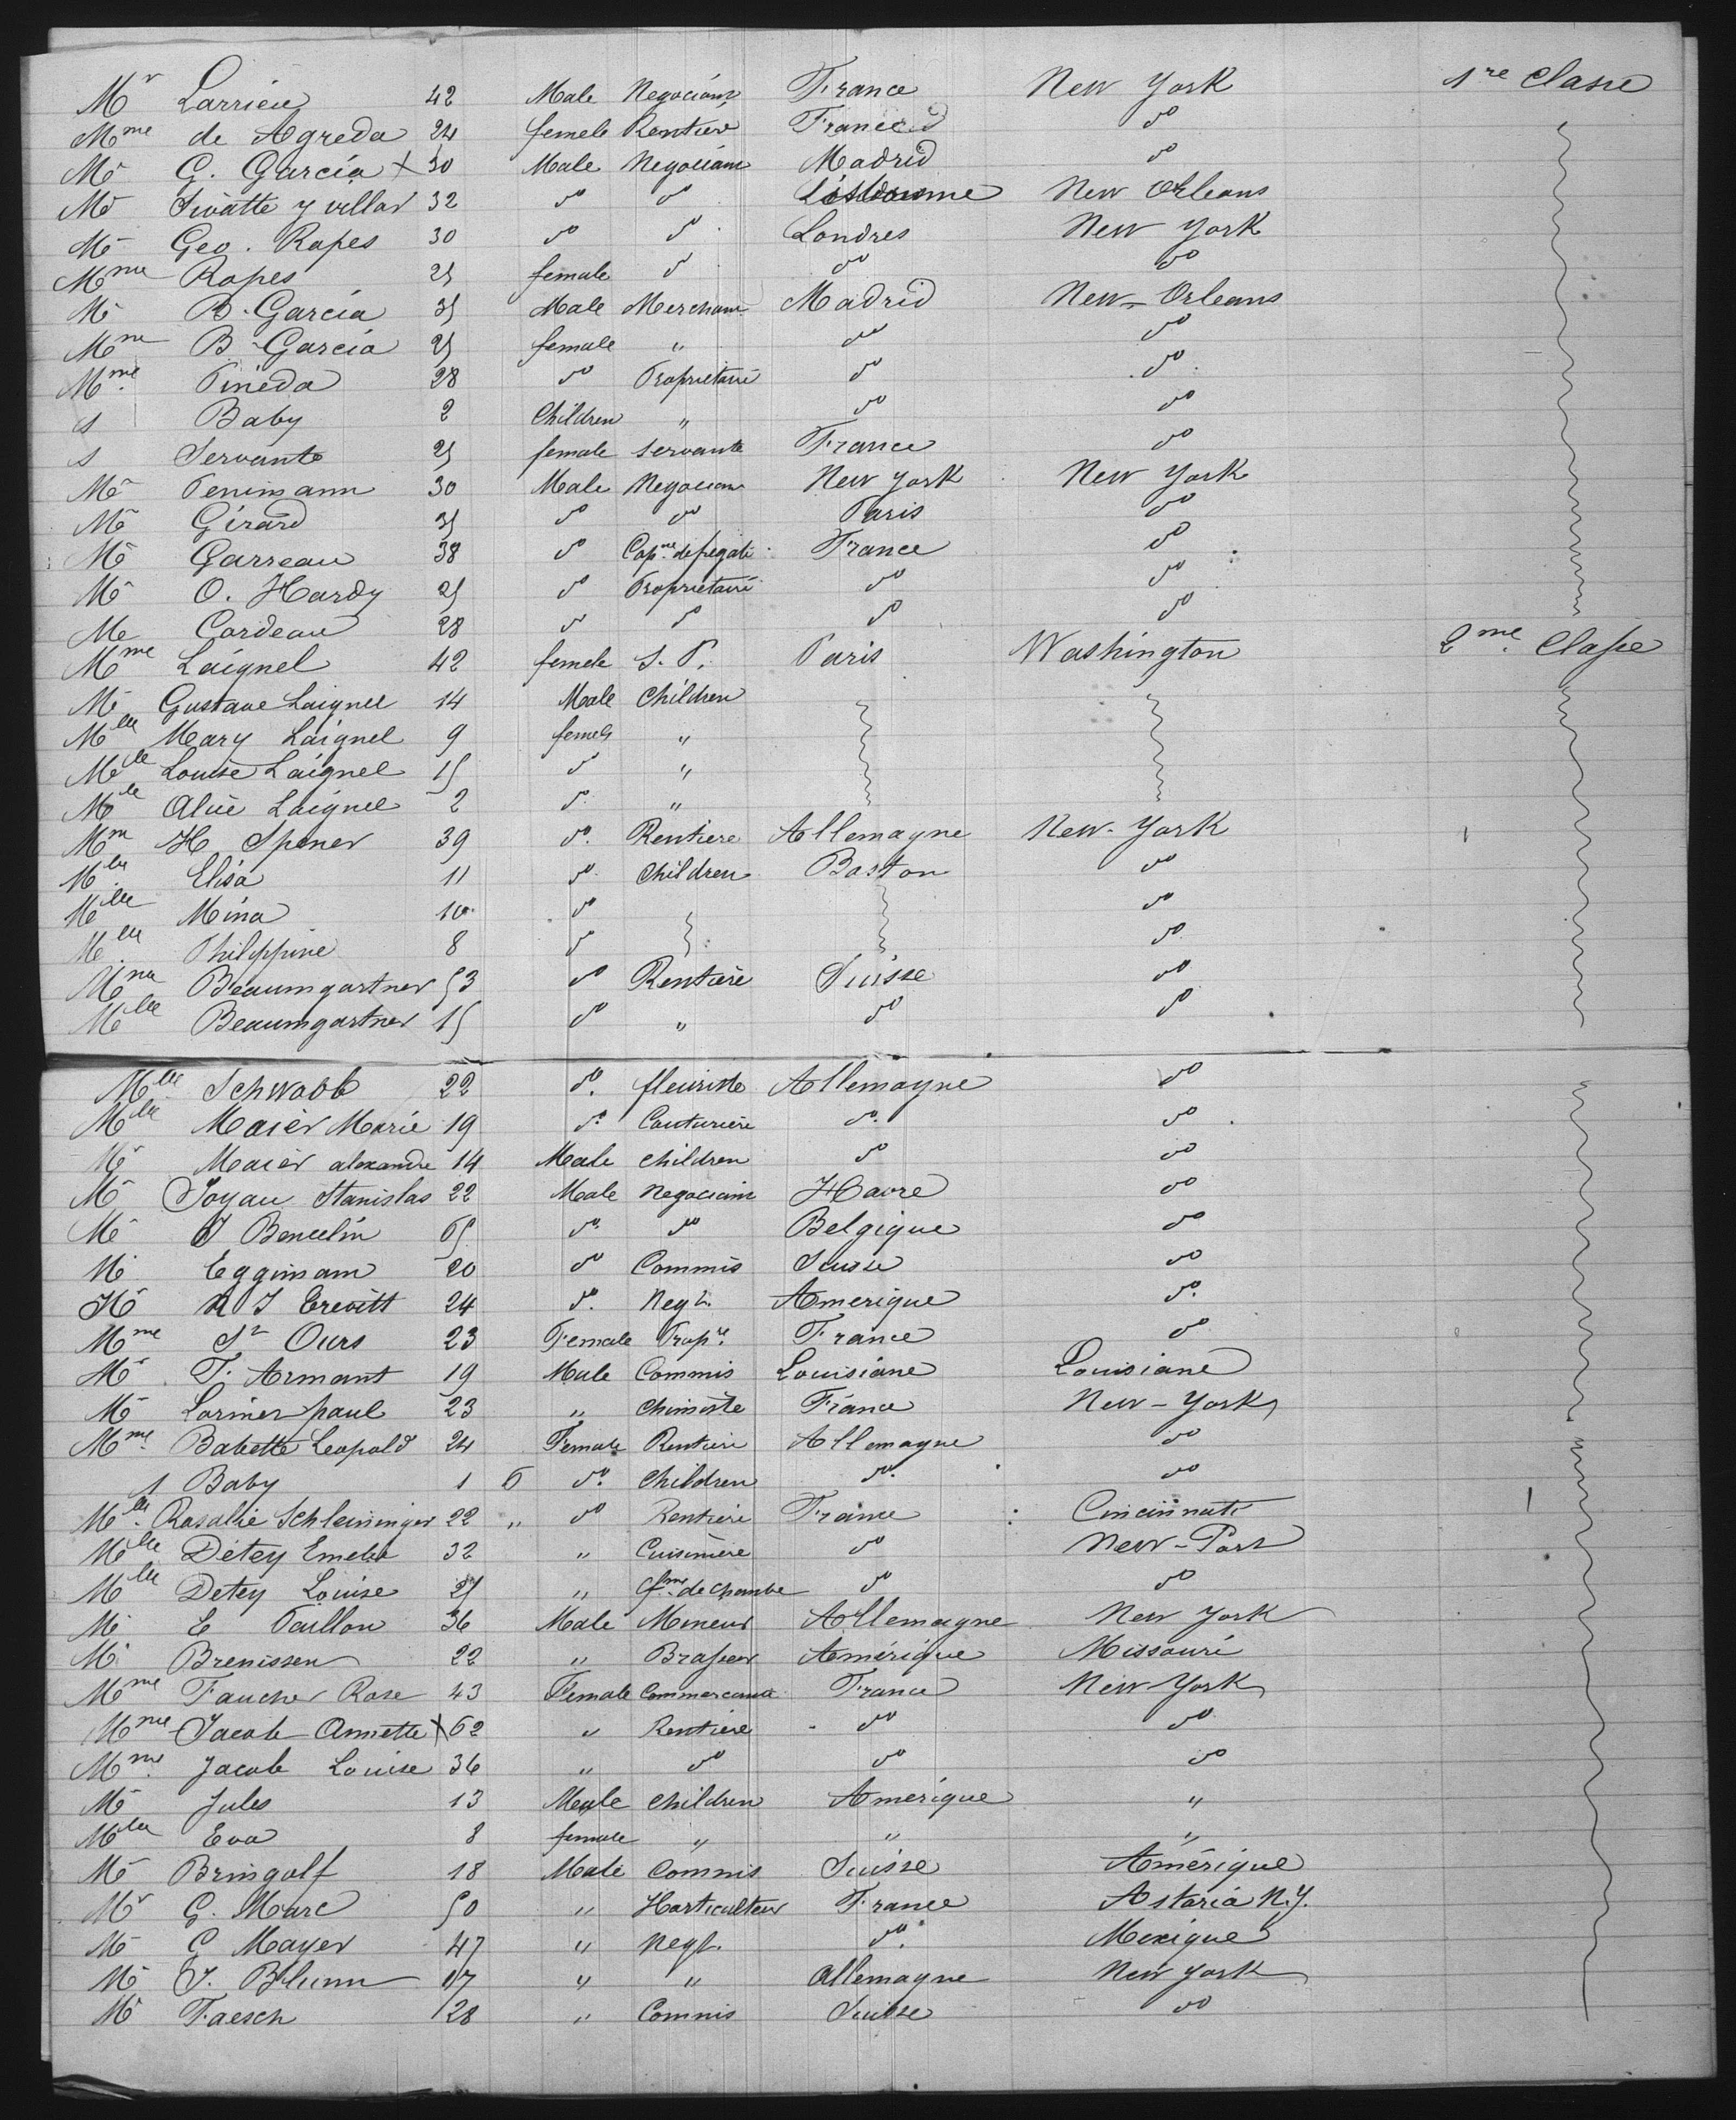 Mr Larrieu 42 Male Negociant France New York 1re Classe
Mme de Agreda 24 female Rentiere France do
Mr G. Garcia X 30 Male Negociant Madrid do
Mr Sivatte y villar 32 do do New Orleans
Mr Geo. Ropes 30 do do Londres New York
Mme Ropes 25 female do do do
Mr B. Garcia 35 Male Merchant Madrid New-Orleans
Mme B Garcia 25 female " do do
Mme Pineda 28 do Proprietaire do do
s Baby 2 Children " do do
s Servante 25 female servante France do
Mr Penimann 30 Male Negociant New York New York
Mr Girard 35 do do Paris do
Mr Garreau 38 do Capne de fregate France do
Mr O. Hardy 25 do Proprietaire do do
Mr Cardeau 28 do do do do
Mme Laignel 42 female S. P. Paris Washington 2me Classe
Mr Gustave Laignel 14 Male Children
Mlle Mary Laignel 9 female "
Mlle Louise Laignel 15 do "
Mlle Alice Laignel 2 do "
Mme H Spener 39 do Rentiere Allemagne New-York
Mlle Elisa 11 do Children Boston do
Mlle Mina 10 do do
Mlle Philippine 8 do do
Mme Beaumgartner 53 do Rentière Suisse do
Mlle Beaumgartner 15 do " do do
Mlle Schwabb 22 do fleuriste Allemagne do
Mlle Maier Marie 19 do Couturière do do
Mr Maier alexandre 14 Male children do do
Mr Soyau Stanislas 22 Male Negociant Havre do
Mr J Bencelin 65 do do Belgique do
Mr Eggimann 20 do Commis Suisse do
Mr R J Trevitt 24 do Negt. Amerique do
Mme St Ours 23 Female Propre France do
Mr F. Armant 19 Male Commis Louisiane Louisiane
Mr Lorinier paul 23 " chimiste France New-York
Mme Babette Leopold 24 Female Rentiere Allemagne do
s Baby 1 6 do children do do
Mlle Rosalie Schleininger 22 " do Rentiere France Cincinnati
Mlle Détey Emelie 32 " Cuisinière do
Mlle Detey Louise 25 " fme de chambe do do
Mr E Paillon 36 Male Mineur Allemagne New York
Mr Brenissen 22 " Brasseur Amérique Missouri
Mme Faucher Rose 43 Female Commercante France New York
Mme Jacob Annette X 62 " Rentiere do do
Mme Jacob Louise 36 " do do do
Mr Jules 13 Male children Amérique "
Mlle Eva 8 female " " "
Mr Bringolf 18 Male Commis Suisse Amérique
Mr G. Marc 50 " Horticulteur France Astoria N.Y.
Mr C Mayer 47 " Negt. do Mexique
Mr J. Blumm 17 " " Allemagne New York
Mr Faesch 28 " Commis Suisse do